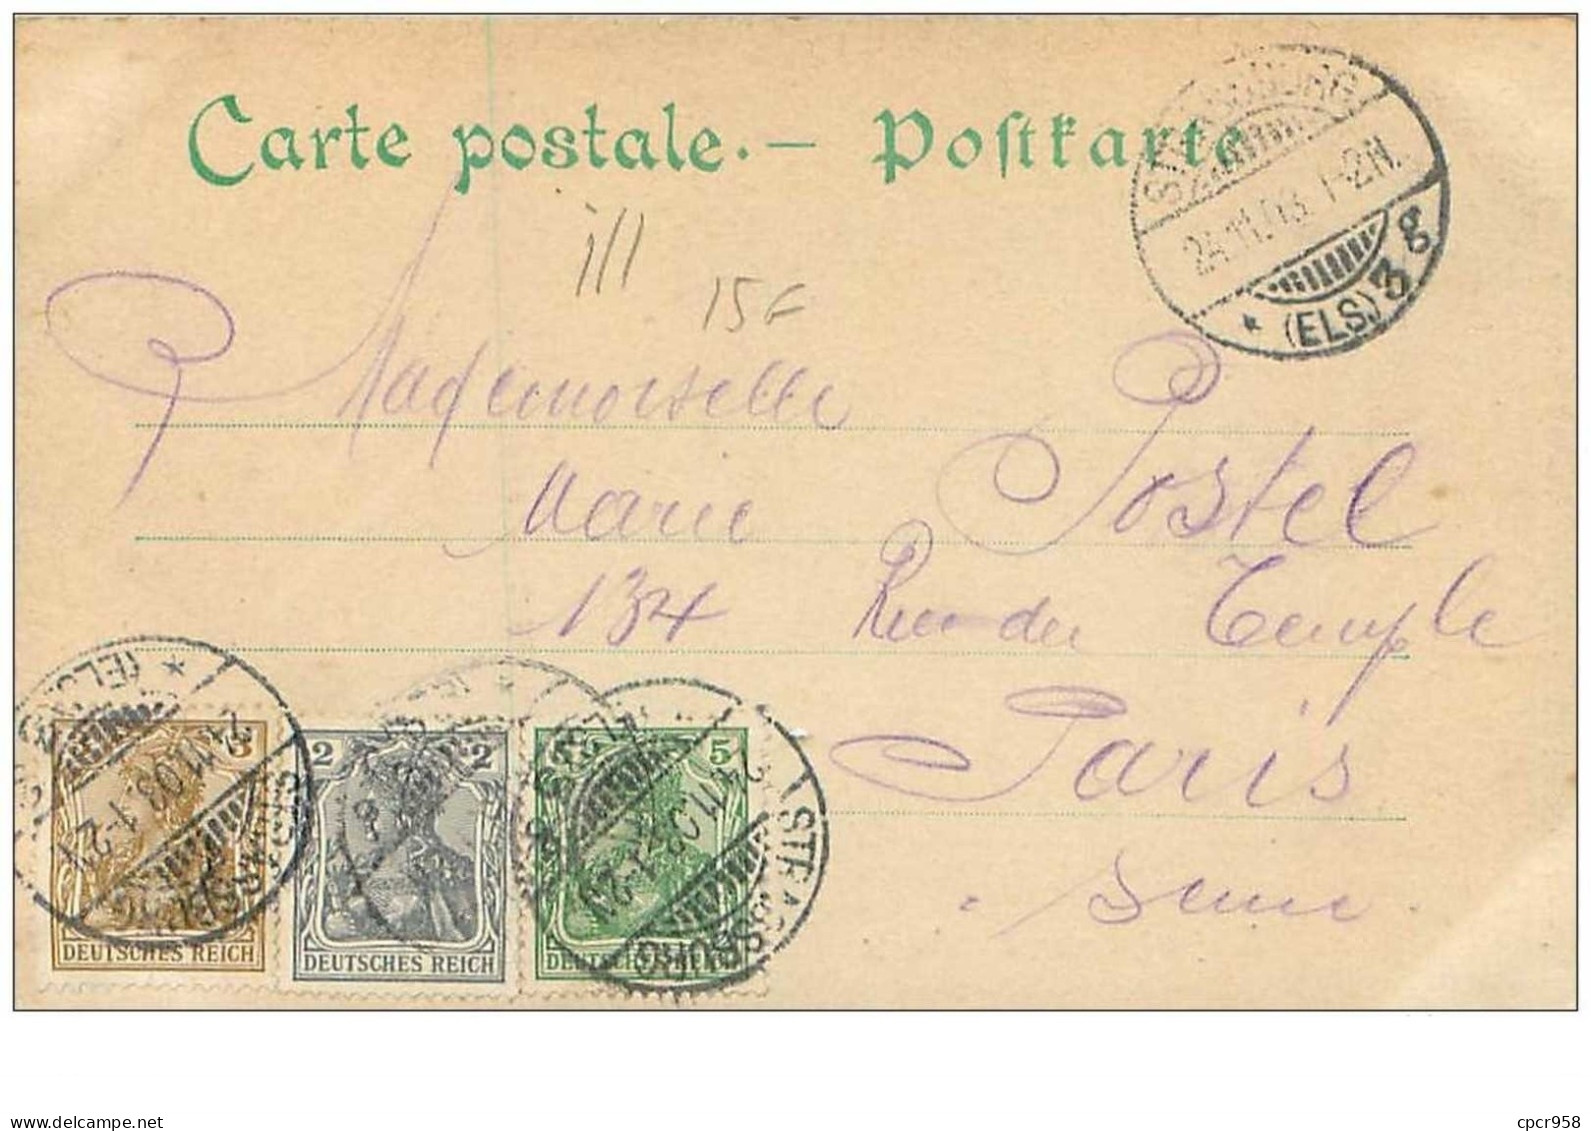 Carte postale. — Poſtkarte
STRASSBURG
24.11.03. 1-2N.
* (ELS.) 3 g
ill
15F
Mademoiselle
Marie Postel
134 Rue du Temple
Paris
Seine.
3
2 2
5
DEUTSCHES REICH
DEUTSCHES REICH
DEUTSCHES REICH
STRASSBURG
delcampe.net
cpcr958